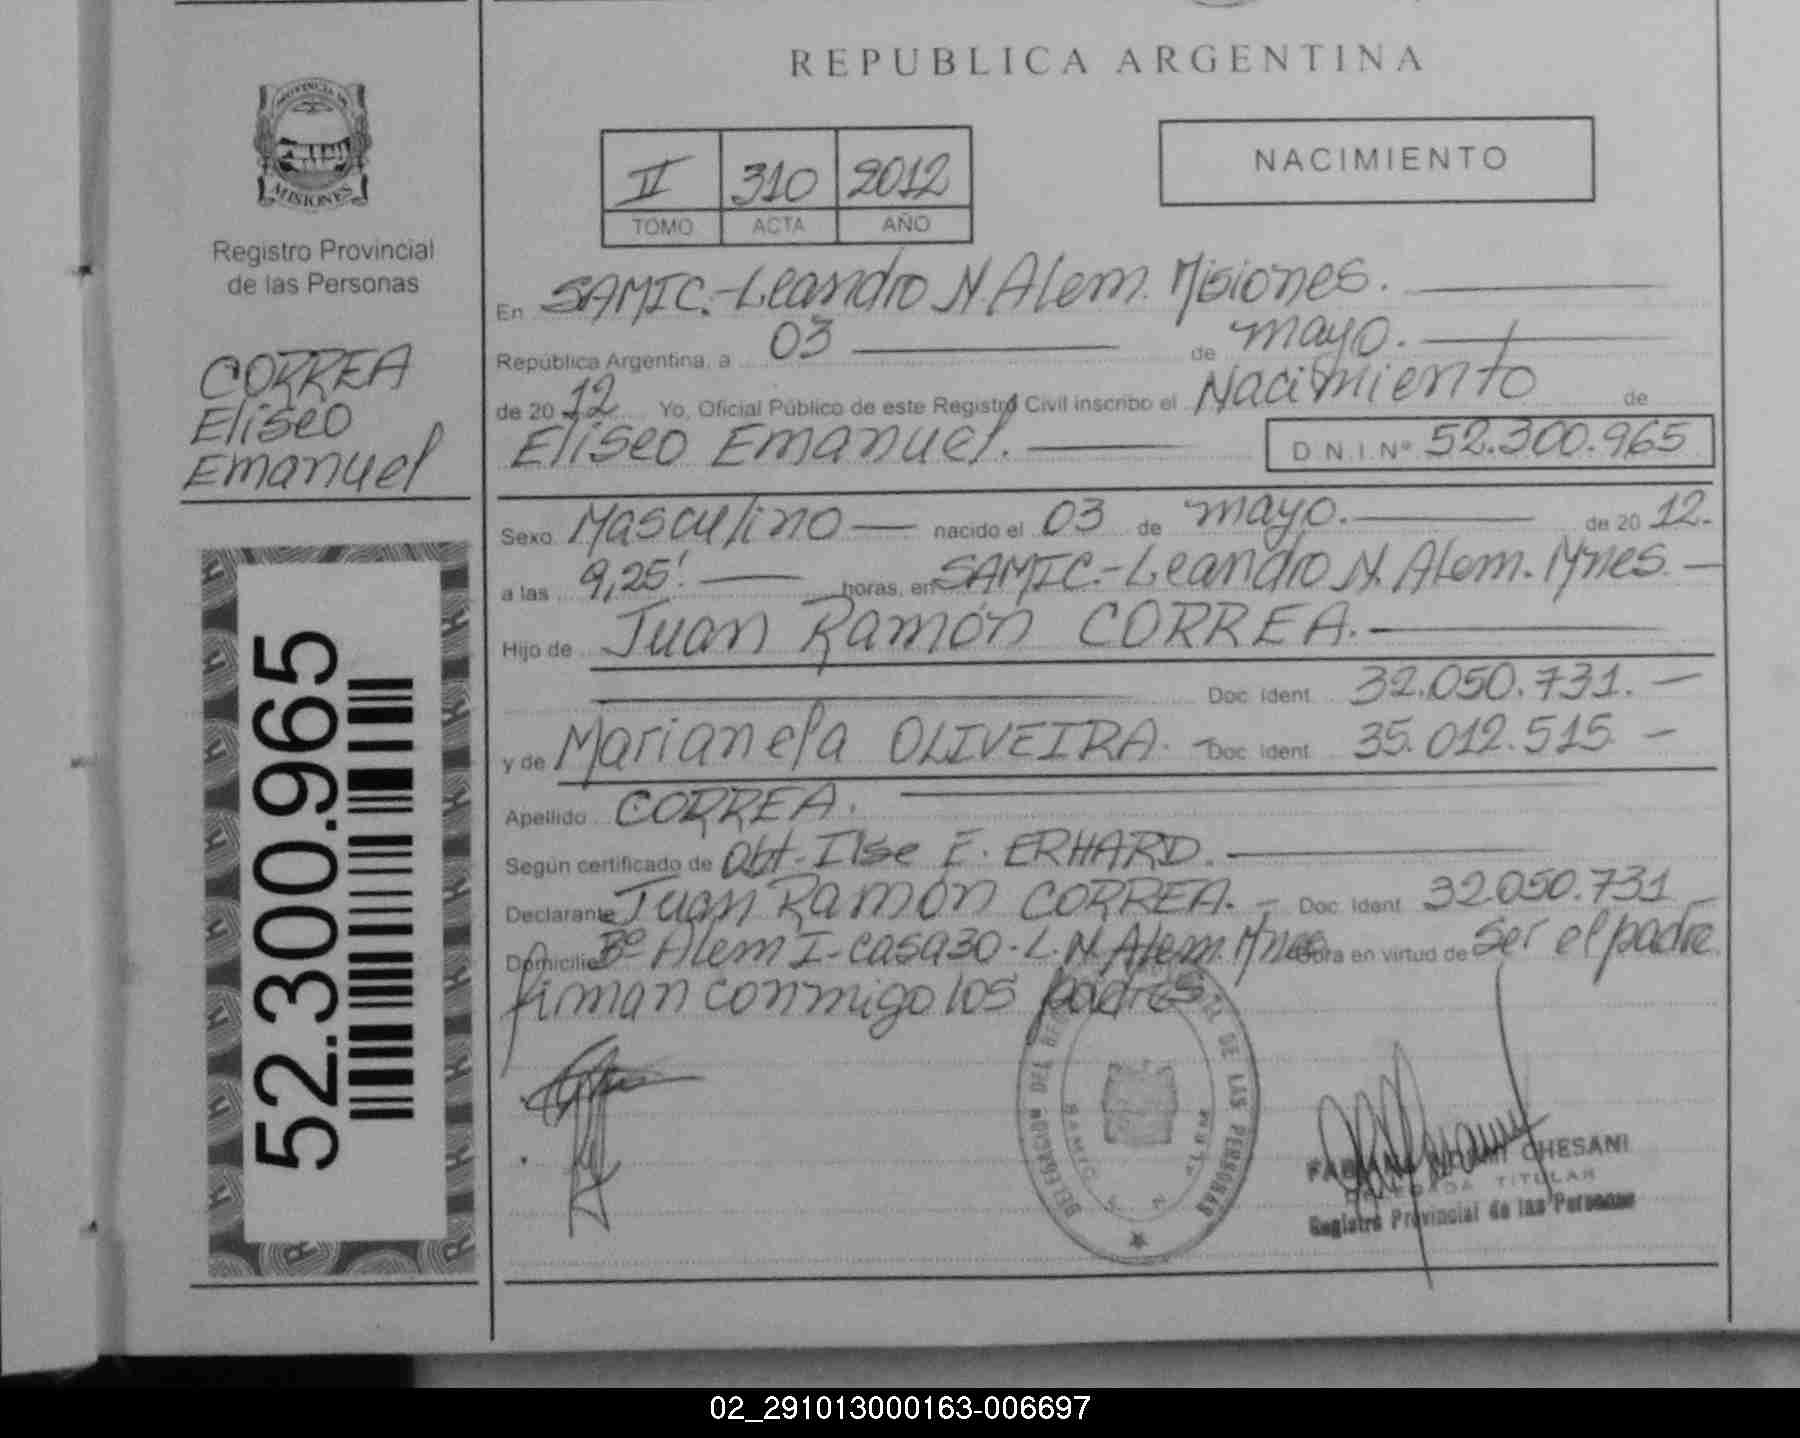 REPUBLICA ARGENTINA
PROVINCIA DE
MISIONES
Registro Provincial
de las Personas
CORREA
Eliseo
Emanuel
52.300.965
II 310 2012
TOMO ACTA AÑO
NACIMIENTO
En SAMIC.-Leandro N Alem. Misiones.
República Argentina, a 03 de mayo.
de 20 12 Yo, Oficial Público de este Registro Civil inscribo el Nacimiento de
Eliseo Emanuel. D.N.I.Nº 52.300.965
Sexo Masculino nacido el 03 de mayo. de 20 12.
a las 9,25'. horas, en SAMIC.-Leandro N. Alem. Mnes.
Hijo de Juan Ramón CORREA.
Doc. Ident. 32.050.731.
y de Marianela OLIVEIRA. Doc. Ident. 35.012.515
Apellido CORREA.
Según certificado de Obt. Ilse E. ERHARD.
Declarante Juan Ramón CORREA. Doc. Ident. 32.050.731
Domicilio Bº Alem I-casa30-L.N. Alem. Mnes Obra en virtud de ser el padre.
firman conmigo los padres
DELEGACION DEL DE LAS PERSONAS
SAMIC L. N. ALEM
CHESANI
DELEGADA TITULAR
Registro Provincial de las Personas
02_291013000163-006697